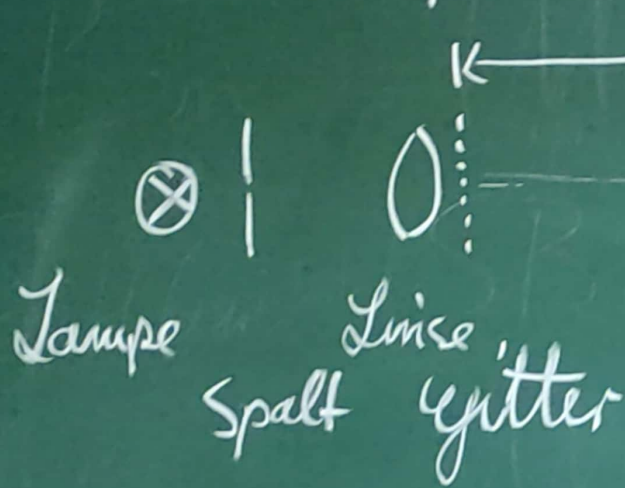 Lampe
Linse,
Spalt Gitter